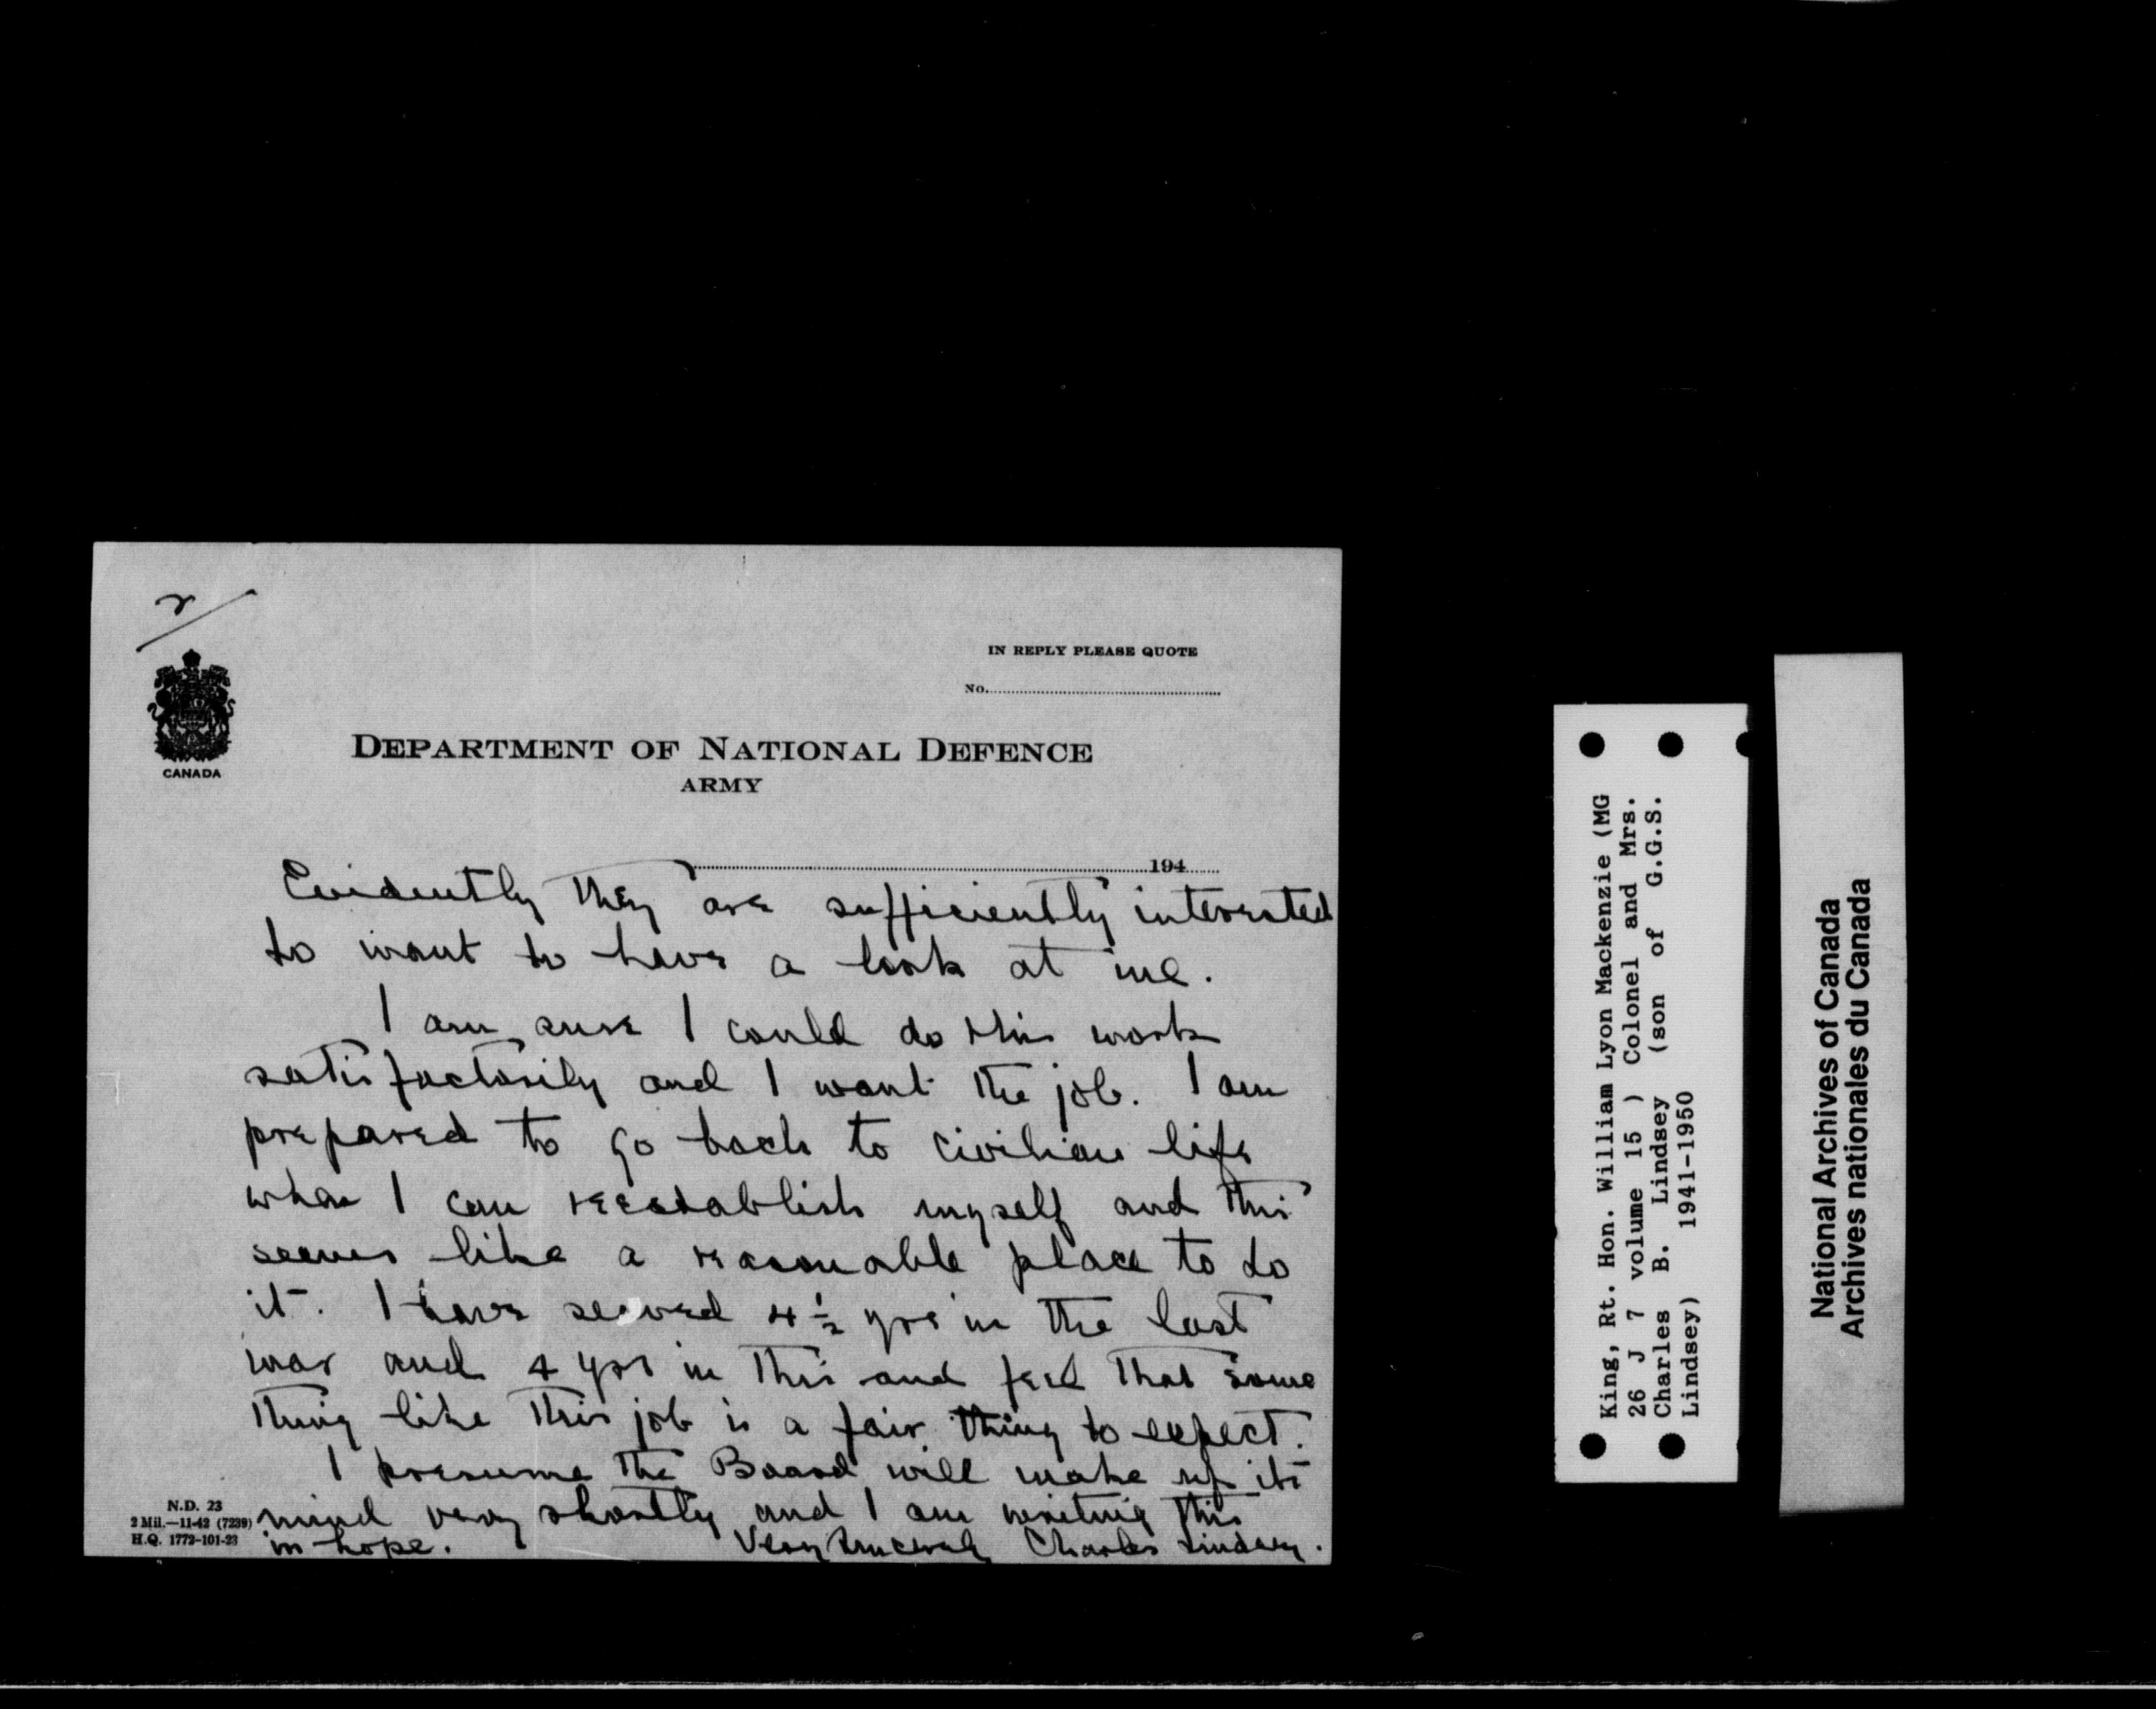 2
CANADA
IN REPLY PLEASE QUOTE
No.
DEPARTMENT OF NATIONAL DEFENCE
ARMY
194
Evidently they are sufficiently interested
to want to have a look at me.
I am sure I could do this work
satisfactorily and I want the job. I am
prepared to go back to civilian life
when I can reestablish myself and this
seems like a reasonable place to do
it. I have served 4 1/2 yrs in the last
war and 4 yrs in this and feel that some
thing like this job is a fair thing to expect.
I presume the Board will make up its
mind very shortly and I am writing this
in hope.
Very Sincerely Charles Lindsey.
N.D. 23
2 Mil.—11-42 (7239)
H.Q. 1772-101-23
King, Rt. Hon. William Lyon Mackenzie (MG
26 J 7 volume 15 ) Colonel and Mrs.
Charles B. Lindsey (son of G.G.S.
Lindsey) 1941-1950
National Archives of Canada
Archives nationales du Canada